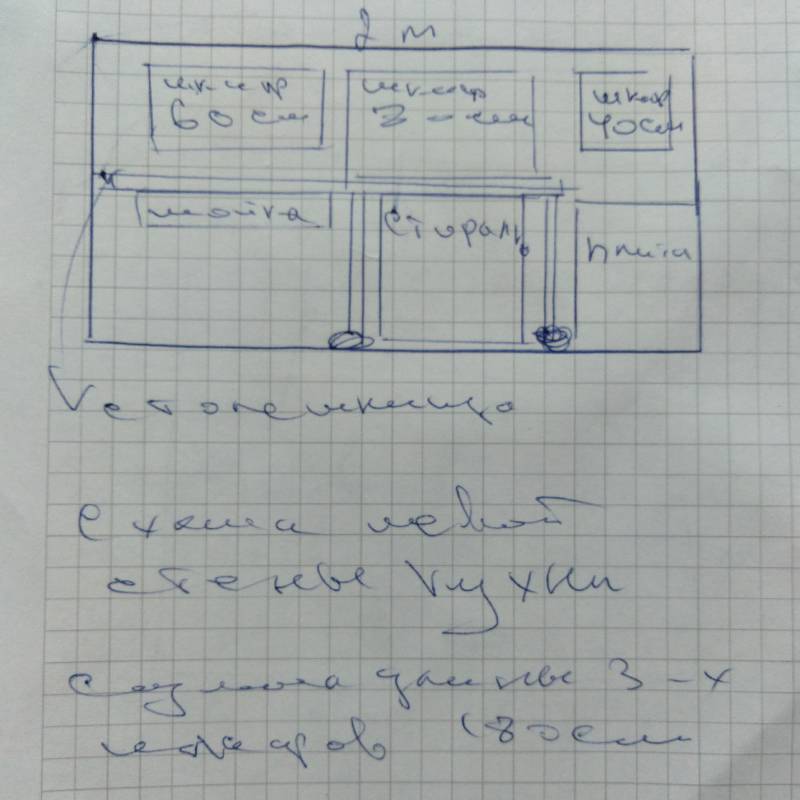 2 м
шкаф
60 см
шкаф
80 см
шкаф
40 см
мойка
стираль
плита
столешница
схема левой
стены кухни
сумма длины 3-х
шкафов 180 см